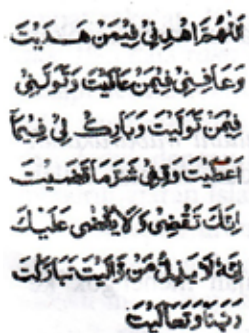 اَللّٰهُمَّ اهْدِنِيْ فِيْمَنْ هَدَيْتَ
وَعَافِنِيْ فِيْمَنْ عَافَيْتَ وَتَوَلَّنِيْ
فِيْمَنْ تَوَلَّيْتَ وَبَارِكْ لِيْ فِيْمَا
اَعْطَيْتَ وَقِنِيْ شَرَّمَا قَضَيْتَ
اِنَّكَ تَقْضِيْ وَلَا يُقْضٰى عَلَيْكَ
اِنَّهُ لَا يَذِلُّ مَنْ وَّالَيْتَ تَبَارَكْتَ
رَبَّنَا وَتَعَالَيْتَ